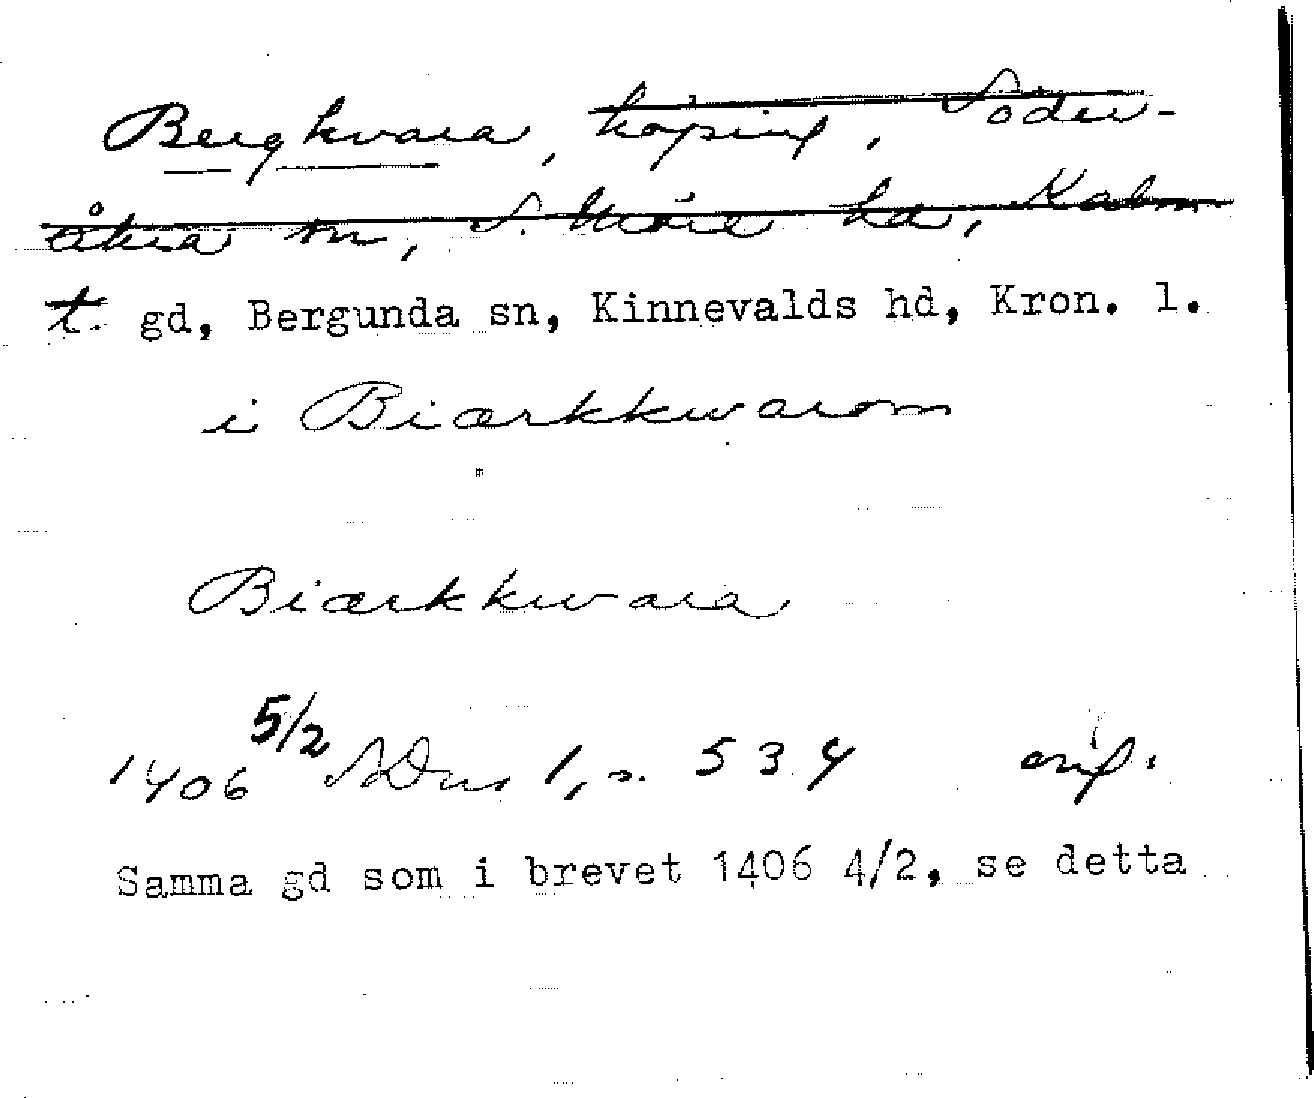 Bergkvara, köping, Söder-
åkra sn, S. Möre hd, Kalm
t. gd, Bergunda sn, Kinnevalds hd, Kron. l.
i Biærkkwarom
Biærkkwara
1406 5/2 SDns 1, s. 534 orig.
Samma gd som i brevet 1406 4/2, se detta